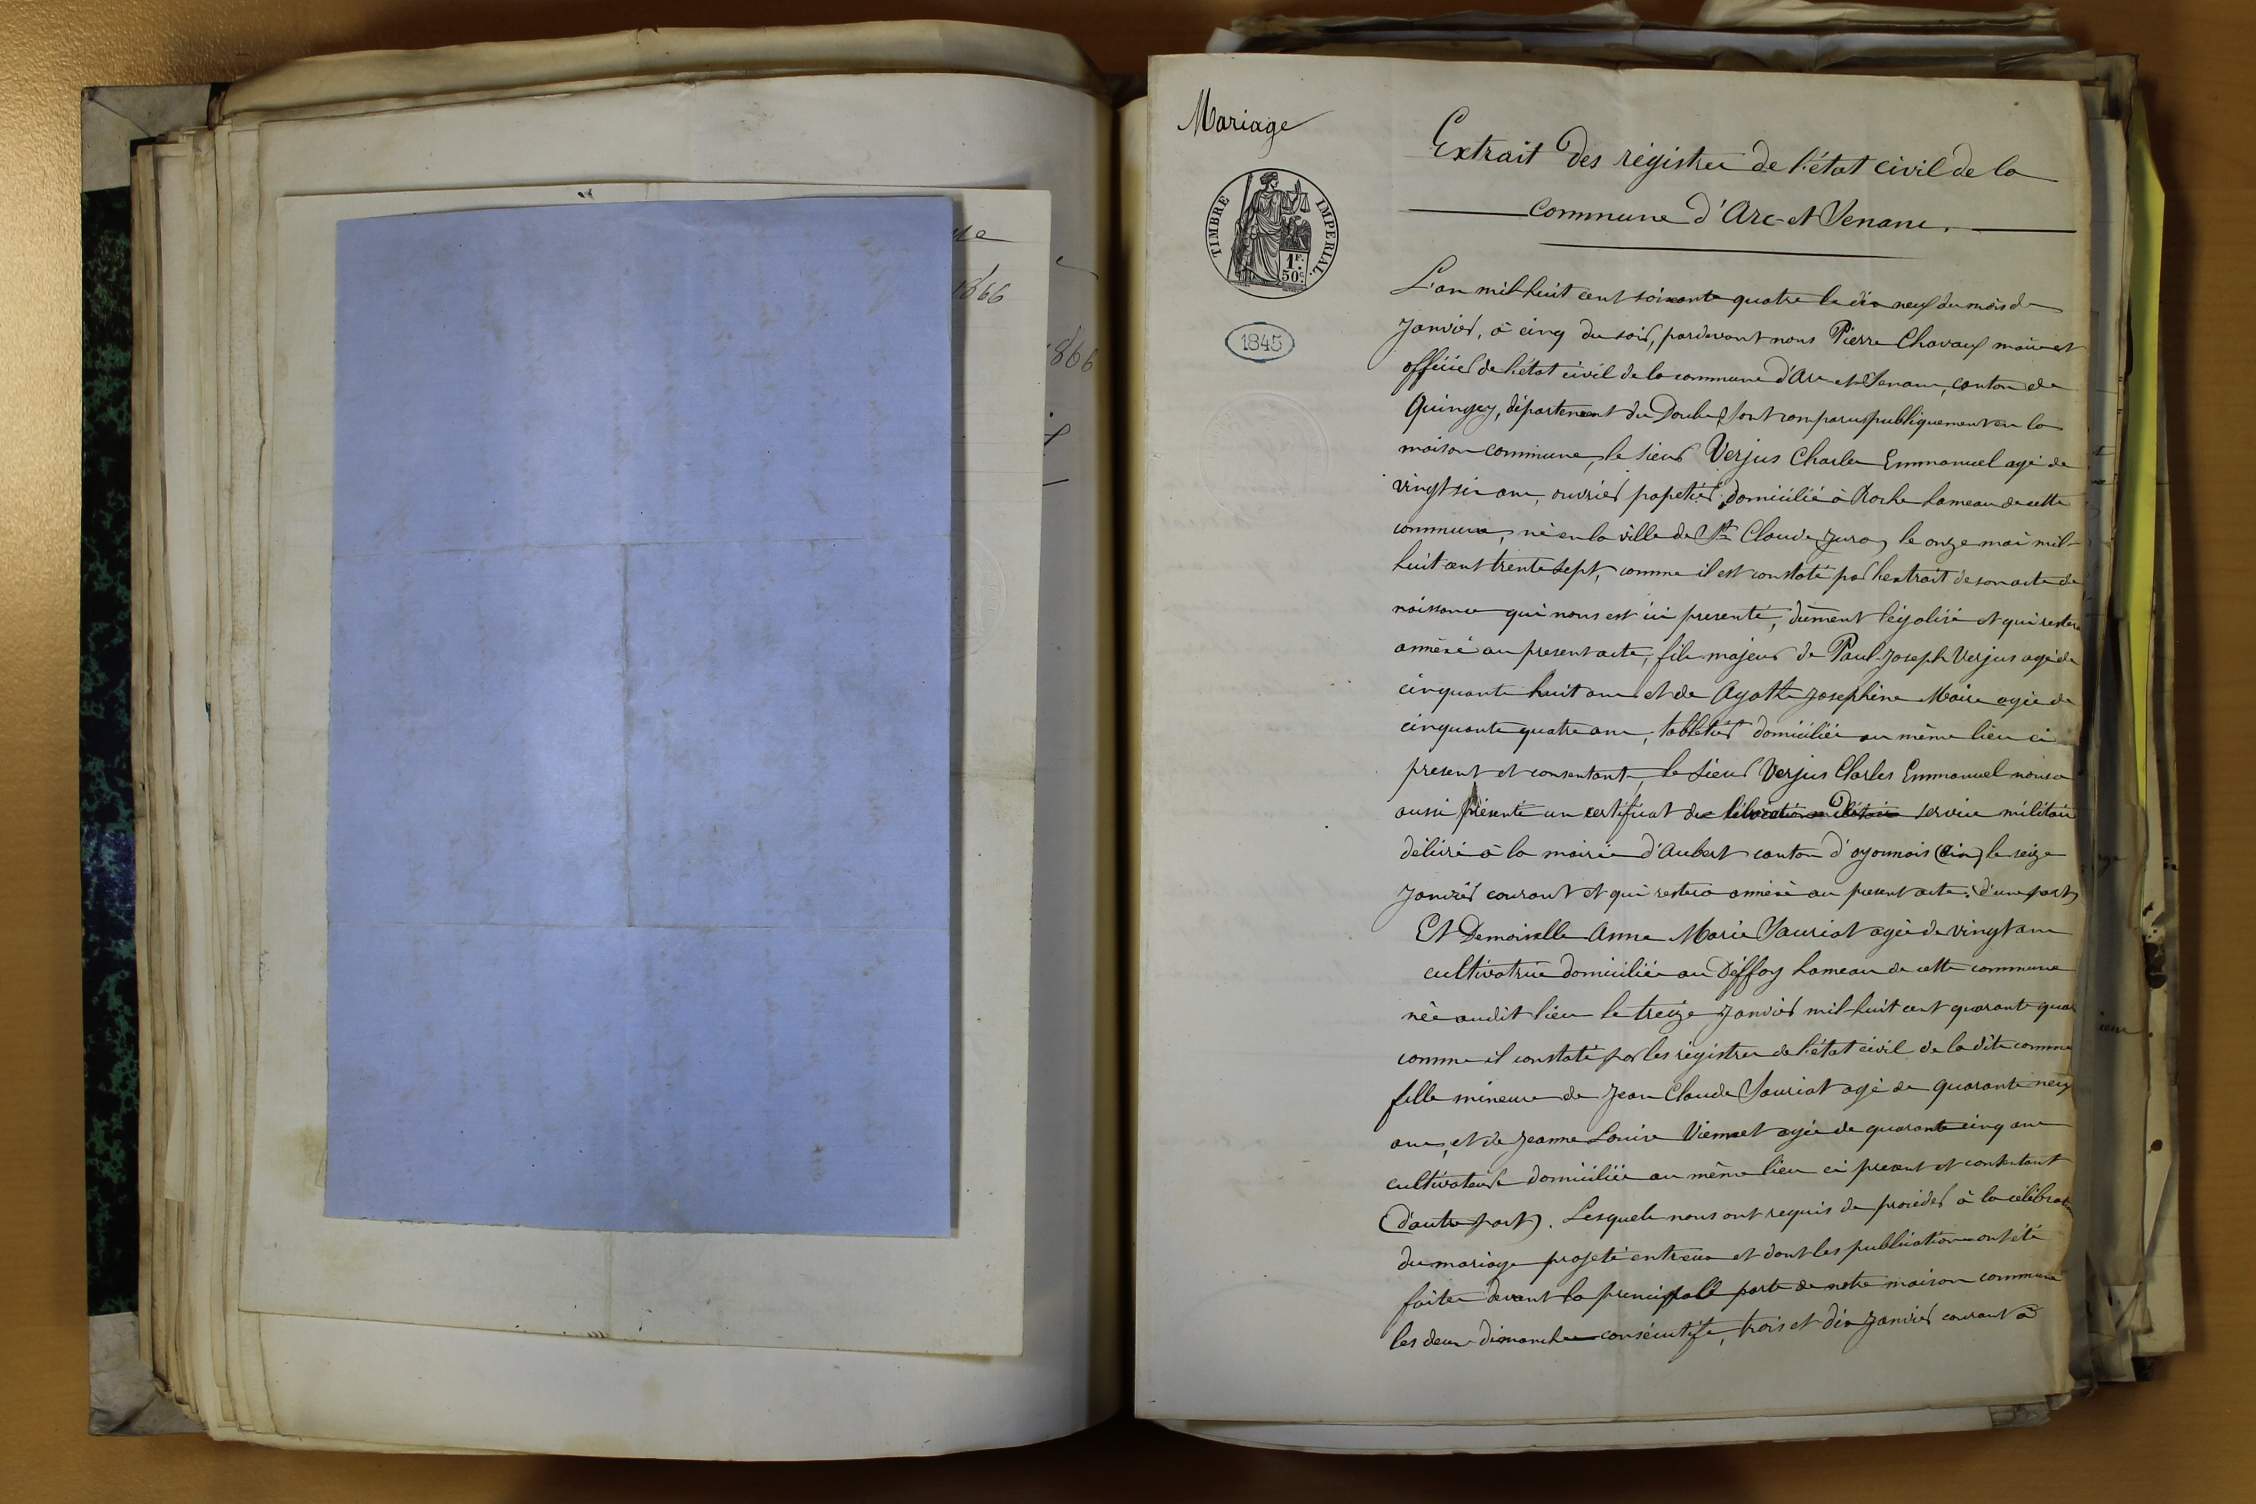 1866
1866
Mariage
TIMBRE IMPERIAL
1F.
50c.
1845
Extrait des régistres de l'état civil de la
commune d'Arc-et-Senans.
L'an mil-huit cent soixante quatre le dix neuf du mois de
Janvier, à cinq du soir, pardevant nous Pierre Chavaux maire et
officier de l'état civil de la commune d'Arc-et-Senans, canton de
Quingey, département du Doubs, sont comparus publiquement en la
maison commune, le sieur Verjus Charles Emmanuel agé de
vingt six ans, ouvrier papetier, domicilié à Roche hameau de cette
commune, né en la ville de St Claude, Jura, le onze mai mil-
huit cent trente sept, comme il est constaté par l'extrait de son acte de
naissance qui nous est ici presenté, dûment légalisé et qui restera
annéxé au present acte, fils majeur de Paul-Joseph Verjus agé de
cinquante huit ans et de Agathe Josephine Maire agée de
cinquante quatre ans, tabletier domiciliés au même lieu ci
present et consentant, le sieur Verjus Charles Emmanuel nous a
aussi présenté un certificat de libération service militaire
délivré à la mairie d'Aubert canton d'oyonnois (Ain) le seize
Janvier courant et qui restera annéxé au present acte. (d'une part)
Et Demoiselle Anne Marie Sauriat agée de vingt ans
cultivatrice domiciliée au Déffoy hameau de cette commune
née audit lieu le treize Janvier mil-huit cent quarante quat
comme il constaté par les régistres de l'état civil de la dite commune
fille mineure de Jean Claude Sauriat agé de quarante neuf
ans, et de Jeanne Louise Viennet agée de quarante cinq ans
cultivateurs domiciliés au même lieu ci present et consentant
(d'autre part). Lesquels nous ont requis de procéder à la célébrat
du mariage projeté entr'eux et dont les publications ont été
faites devant la principalle porte de notre maison commune
les deux dimanches consécutifs, trois et dix Janvier courant à